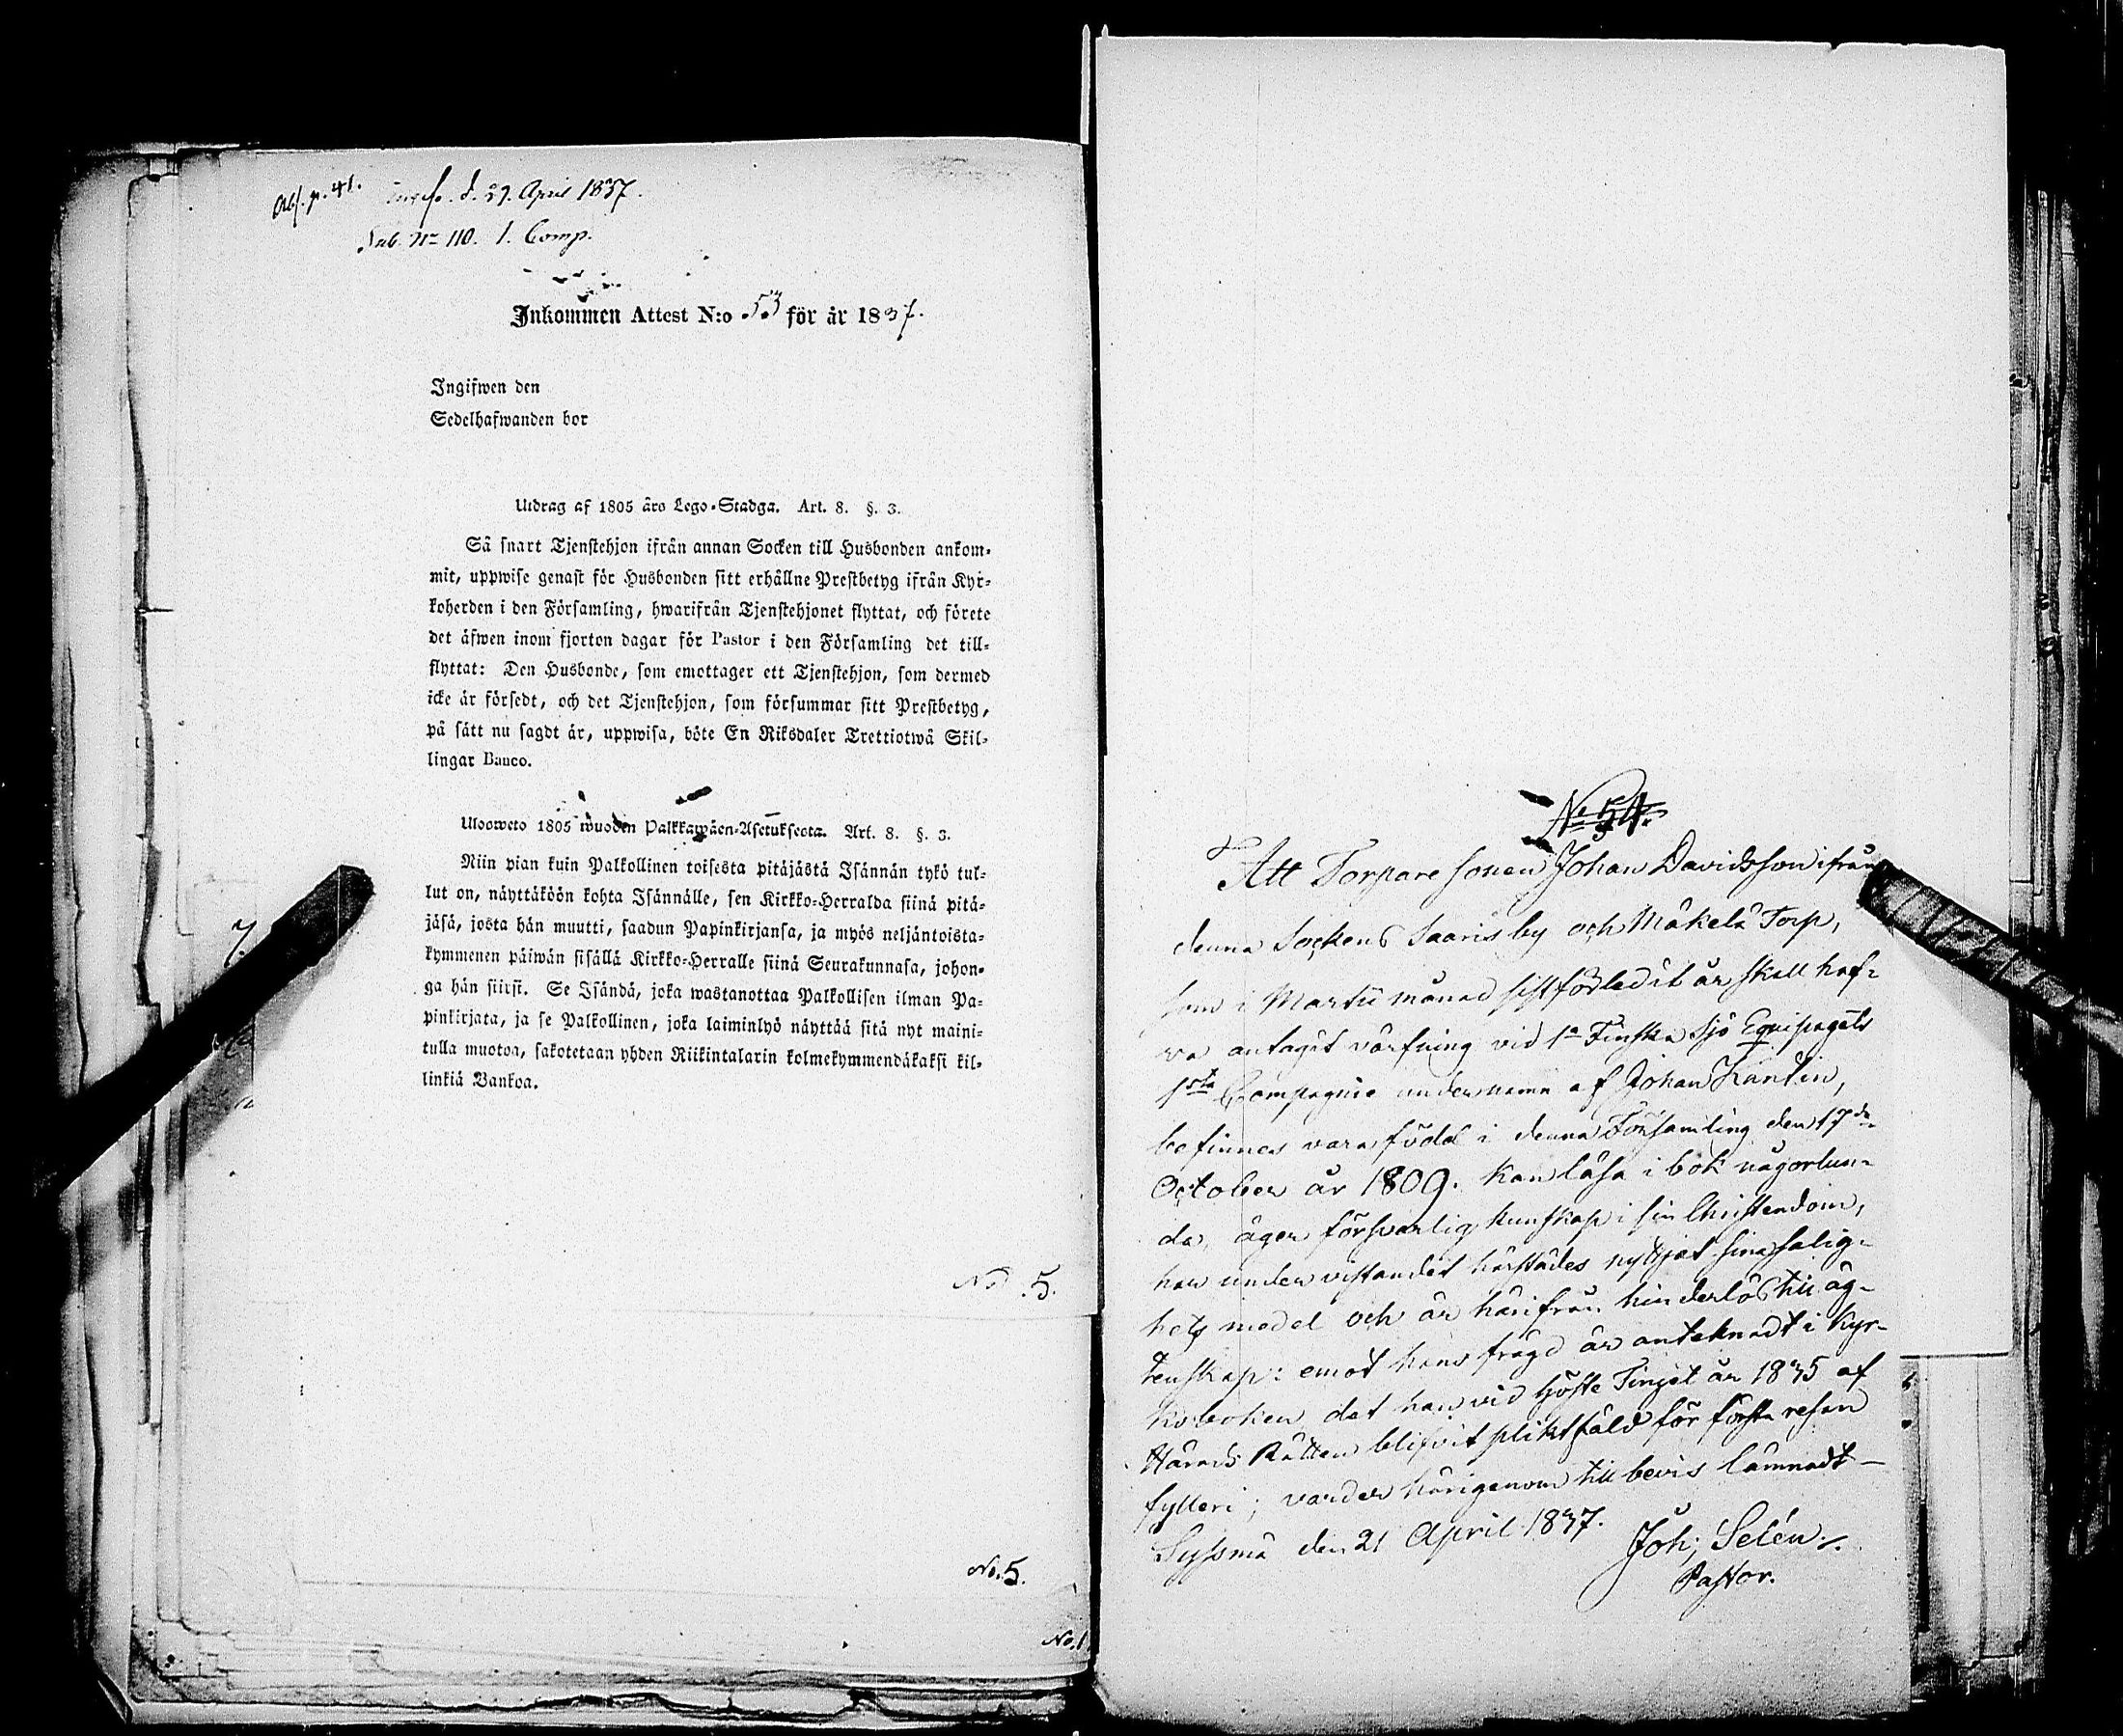 Abs. p. 41.
d. 29. April 1837.
Sub. No 110. 1. Comp.
Inkommen Attest N:o 53 för år 1837.
Ingifwen den
Sedelhafwanden bor
Utdrag af 1805 års Lego-Stadga. Art. 8. §. 3.
Så snart Tjenstehjon ifrån annan Socken till Husbonden ankom-
mit, uppwise genast för Husbonden sitt erhållne Prestbetyg ifrån Kyr-
koherden i den Församling, hwarifrån Tjenstehjonet flyttat, och förete
det äfwen inom fjorton dagar för Pastor i den Församling det till-
flyttat: Den Husbonde, som emottager ett Tjenstehjon, som dermed
icke är försedt, och det Tjenstehjon, som försummar sitt Prestbetyg,
på sätt nu sagdt är, uppwisa, böte En Riksdaler Trettiotwå Skil-
lingar Banco.
Ulosweto 1805 wuoden Palkkawäen-Asetuksesta. Art. 8. §. 3.
Niin pian kuin Palkollinen toisesta pitäjästä Isännän tykö tul-
lut on, näyttäköön kohta Isännälle, sen Kirkko-Herralda siinä pitä-
jäsä, josta hän muutti, saadun Papinkirjansa, ja myös neljäntoista-
kymmenen päiwän sisällä Kirkko-Herralle siinä Seurakunnasa, johon-
ga hän siirsi. Se Isändä, joka wastanottaa Palkollisen ilman Pa-
pinkirjata, ja se Palkollinen, joka laiminlyö näyttää sitä nyt maini-
tulla muotoa, sakotetaan yhden Riikintalarin kolmekymmendäkaksi kil-
linkiä Bankoa.
No 5.
No. 5.
No. 1
No 54.
Att Torpare sonen Johan Davidsson ifrån
denna Sockens Saaris by och Mäkelä Torp,
som i Martii månad sistförledit år skall haf-
va antagit värfning vid 1a Finska Sjö Equipagets
1sta Compagnie under namn af Johan Kantin,
befinnes vara född i denna Församling den 17de
October år 1809. Kan läsa i bok någorlun-
da, äger försvarlig kunskap i sin Christendom,
har under vistandet härstädes nyttjat sina salig-
hets medel och är härifrån hinderlös till äg-
tenskap: emot hans frägd är anteknadt i Kyr-
koboken det han vid Höste Tinget år 1835 af
Härads Rätten blifvit pliktfäld för första resan
fylleri; varder härigenom till bevis lämnadt —
Syssmä den 21 April 1837.
Joh; Selén.
Pastor.